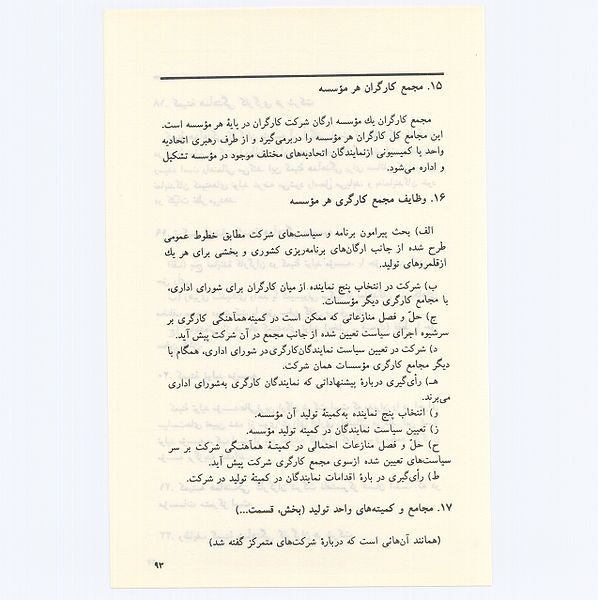 ۱۵. مجمع کارگران هر مؤسسه
مجمع کارگران یك مؤسسه ارگان شرکت کارگران در پایهٔ هر مؤسسه است.
این مجامع کل کارگران هر مؤسسه را دربرمی‌گیرد و از طرف رهبری اتحادیه
واحد یا کمیسیونی ازنمایندگان اتحادیه‌های مختلف موجود در مؤسسه تشکیل
و اداره می‌شود.
۱۶. وظایف مجمع کارگری هر مؤسسه
الف) بحث پیرامون برنامه و سیاست‌های شرکت مطابق خطوط عمومی
طرح شده از جانب ارگان‌های برنامه‌ریزی کشوری و بخشی برای هر یك
ازقلمروهای تولید.
ب) شرکت در انتخاب پنج نماینده از میان کارگران برای شورای اداری،
با مجامع کارگری دیگر مؤسسات.
ج) حلّ و فصل منازعاتی که ممکن است در کمیته‌هماهنگی کارگری بر
سرشیوه اجرای سیاست تعیین شده از جانب مجمع در آن شرکت پیش آید.
د) شرکت در تعیین سیاست نمایندگان‌کارگری‌در شورای اداری، همگام با
دیگر مجامع کارگری مؤسسات همان شرکت.
هـ) رأی‌گیری دربارهٔ پیشنهاداتی که نمایندگان کارگری به‌شورای اداری
می‌برند.
و) انتخاب پنج نماینده به‌کمیتهٔ تولید آن مؤسسه.
ز) تعیین سیاست نمایندگان در کمیته تولید مؤسسه.
ح) حلّ و فصل منازعات احتمالی در کمیتهٔ هماهنگی شرکت بر سر
سیاست‌های تعیین شده ازسوی مجمع کارگری شرکت پیش آید.
ط) رأی‌گیری در بارهٔ اقدامات نمایندگان در کمیتهٔ تولید در شرکت.
۱۷. مجامع و کمیته‌های واحد تولید (بخش، قسمت...)
(همانند آن‌هائی است که دربارهٔ شرکت‌های متمرکز گفته شد)
۹۳